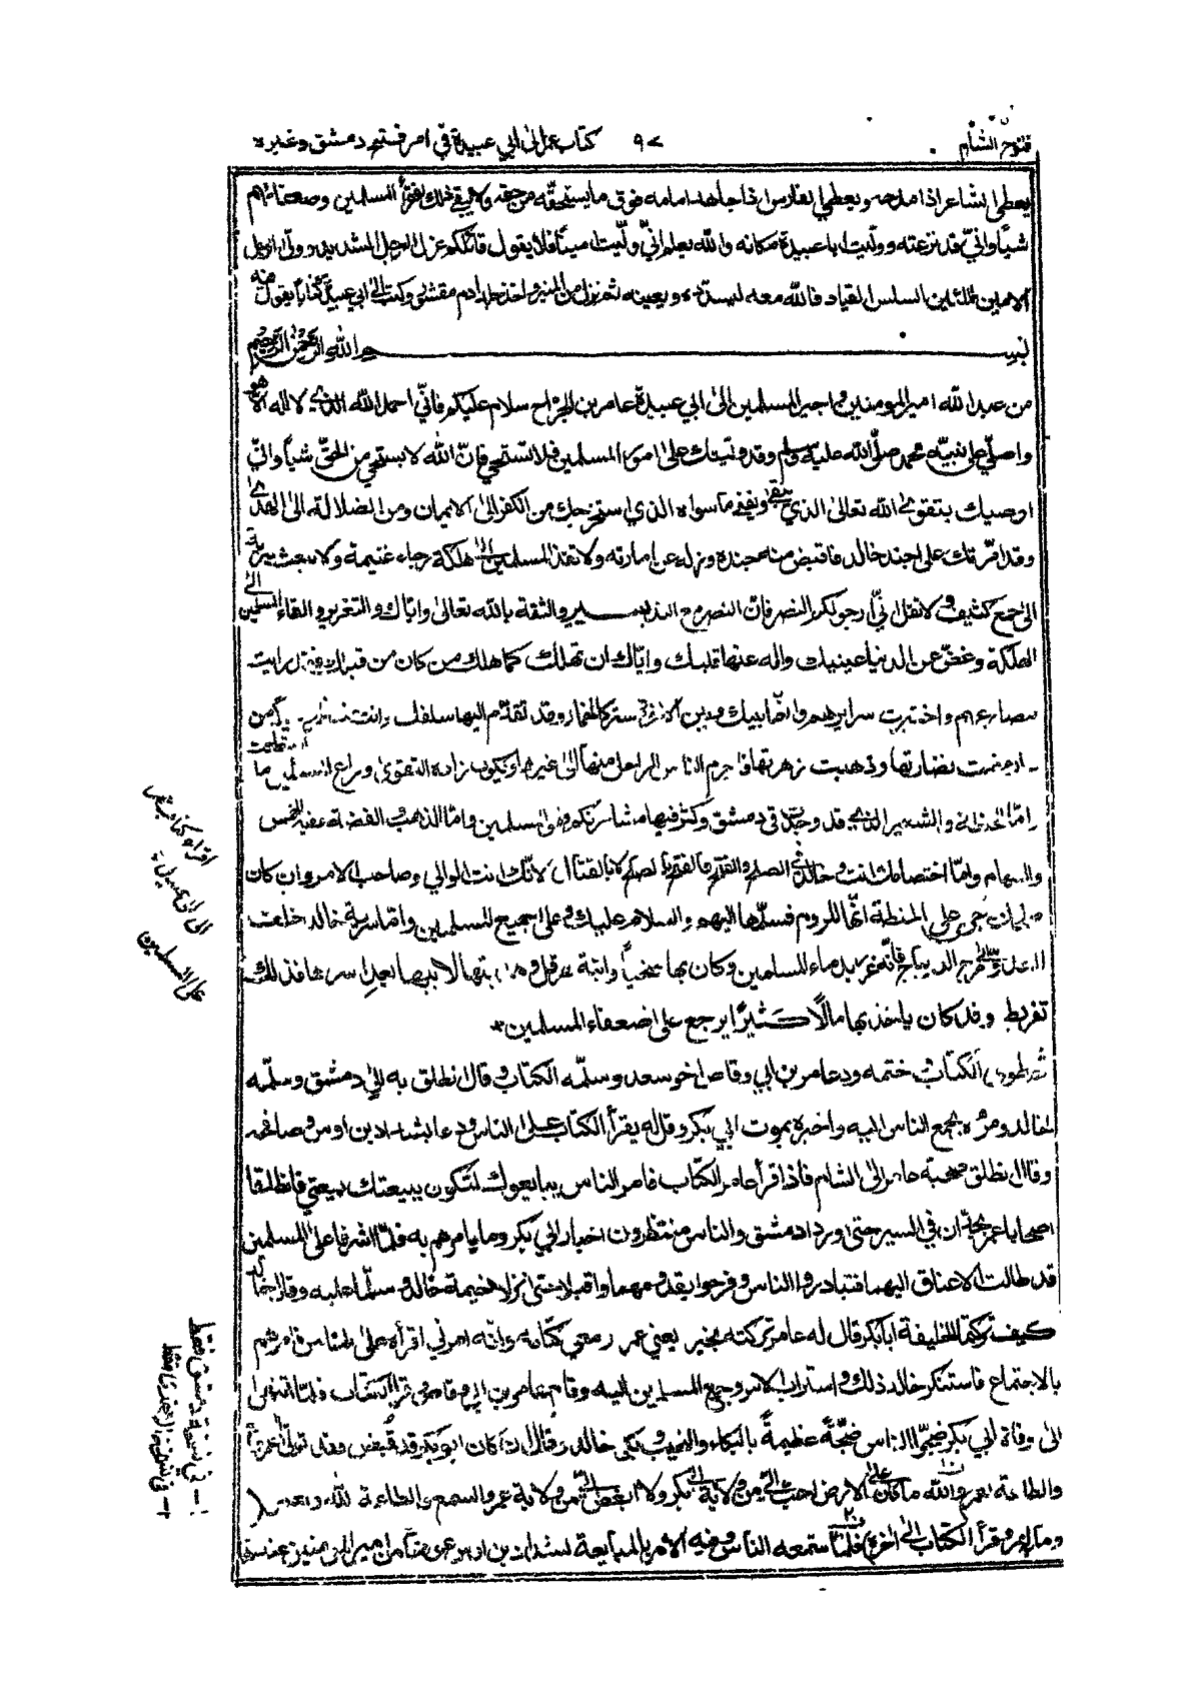 فتوح الشام ٩٧ كتاب عمر الى ابي عبيدة في امر فتح دمشق وغيره
يعطي الشاعر اذا مدحه ويعطي الفارس اذا جاهد امامه فوق ما يستحقه من حقه ولا يبقي ذلك لفقرأ المسلمين وضعفائهم
شيأ واني قد نزعته ووليت ابا عبيدة مكانه والله يعلم اني وليت امينا فلا يقول قائلكم عزل الرجل الشديد وولى الرجل
الامين اللين السلس القياد فالله معه ليسدده ويعينه ثم نزل من المنبر واخذ جلد ادم مقشق وكتب الى ابي عبيدة كتابا يقول فيه
بسم الله الرحمن الرحيم
من عبد الله امير المومنين واجير المسلمين الى ابي عبيدة عامر بن الجراح سلام عليكم فاني احمد الله الذي لا اله الا هو
واصلي على نبيه محمد صلى الله عليه وسلم وقد وليتك على امور المسلمين فلا تستحي فان الله لا يستحي من الحق شيأ واني
اوصيك بتقوى الله تعالى الذي يبقى ويفنى ما سواه الذي استخرجك من الكفر الى الايمان ومن الضلالة الى الهدى
وقد امرتك على جند خالد فاقبض منه جنده ونزله عن امارته ولا تنفذ المسلمين الى هلكة رجاء غنيمة ولا تبعث سرية
الى جمع كثيف ولا تقل اني ارجو لكم النصر فان النصر مع اليقين والثقة بالله تعالى واياك والتغرير والقاء المسلمين الى
الهلكة وغض عن الدنيا عينيك واله عنها قلبك واياك ان تهلك كما هلك من كان من قبلك فقد رايت
مصارعهم واختبرت سرايرهم وانما بينك وبين الاخرة ستر كالخمار وقد تقدم اليها سلفك وانت من
نضارتها وذهبت زهرتها فاحزم الناس الراحل منها الى غيرها ويكون زاده التقوى وراع المسلمين ما استطعت
واما الحنطة والشعير الذي قد وجدت في دمشق وكثر فيها مشاجرتكم فهو للمسلمين واما الذهب والفضة ففيه الخمس
والسهام واما اختصامك انت وخالد في الصلح والقتال فالفتح بالصلح لا بالقتال لانك انت الوالي وصاحب الامر وان كان
جرى على الحنطة انها للروم فسلمها اليهم والسلام عليك وعلى جميع المسلمين واما سرية خالد خلف
العدو الى مرج الديباج فانه غرر بدماء المسلمين وكان بها سخيا وابنة هرقل وهديتها لابيها بعد اسرها فذلك
تفريط وقد كان ياخذ بها مالا كثيرا يرجع على ضعفاء المسلمين *
ثم طوى الكتاب وختمه ودعا عامر بن ابي وقاص اخو سعد وسلمه الكتاب وقال انطلق به الى دمشق وسلمه
لخالد ومره يجمع الناس اليه واخبره بموت ابي بكر وقل له يقرأ الكتاب على الناس ودعا بشداد بن اوس وصافحه
وقال انطلق صحبة عامر الى الشام فاذا قرأ عامر الكتاب فامر الناس يبايعوك لتكون بيعتك بيعتي فانطلقا
يجدان في السير حتى وردا دمشق والناس منتظرون اخبار ابي بكر وما يامرهم به فلما اشرفا على المسلمين
قد طالت الاعناق اليهما فتبادروا الناس وفرحوا بقدومهما واقبلا حتى نزلا خيمة خالد وسلما عليه وقال خالد
كيف تركتما الخليفة ابا بكر قال له عامر تركته بخير يعني عمر ومعي كتابه وانه امرني اقرأه على الناس فامرهم
بالاجتماع فاستنكر خالد ذلك واستراب الامر وجمع المسلمين اليه وقام عامر بن ابي وقاص وقرأ الكتاب فلما انتهى
الى وفاة ابي بكر ضجوا الناس ضجة عظيمة بالبكاء والنحيب وبكى خالد وقال ان كان ابو بكر قد قبض وقد تولى عمر
والطاعة لعمر والله ما كان على الارض احب الي من ولاية ابي بكر ولا ابغض الي من ولاية عمر والسمع والطاعة لله
وقرأ الكتاب الى اخره فلما استمعه الناس وفيه الامر بالمبايعة لشداد بن اوس
على المسلمين
١ — في نسخة دمشق فقط
٢ — في نسخة